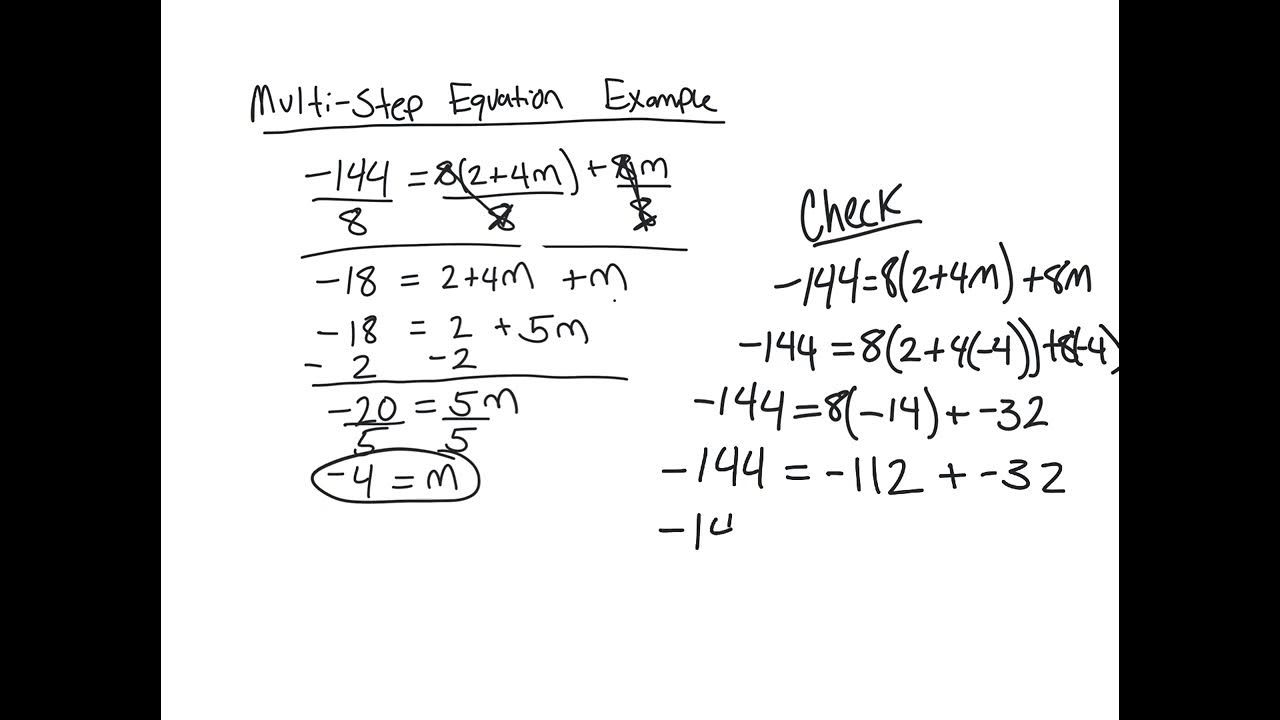 Multi-Step Equation Example
-144 = 8(2+4m) + 8m
8 8 8
-18 = 2+4m +m
-18 = 2 + 5m
- 2 -2
-20 = 5m
5 5
-4 = m
Check
-144=8(2+4m)+8m
-144 = 8(2+4(-4))+8(-4)
-144 = 8(-14) + -32
-144 = -112 + -32
-14